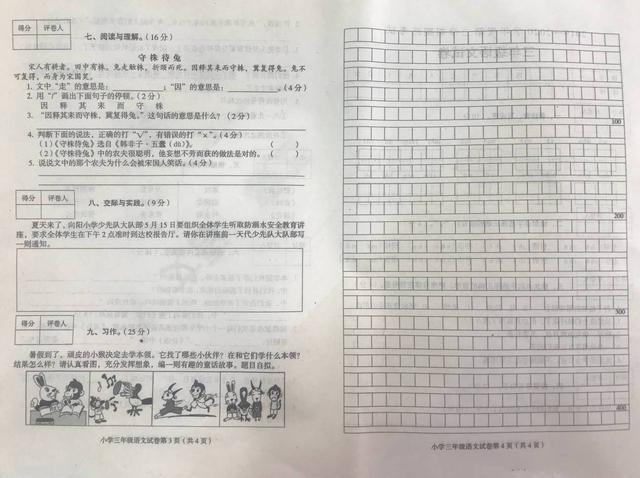 得分 评卷人
七、阅读与理解。(16分)
守株待兔
宋人有耕者。田中有株。兔走触株，折颈而死。因释其耒而守株，冀复得兔。兔不
可复得，而身为宋国笑。
1. 文中“走”的意思是： ；“因”的意思是： 。(4分)
2. 用“/”画出下面句子的停顿。(2分)
因 释 其 耒 而 守 株
3. “因释其耒而守株，冀复得兔。”这句话的意思是什么？(2分)
4. 判断下面的说法，正确的打“√”，有错误的打“×”。(4分)
(1)《守株待兔》选自《韩非子·五蠹(dù)》。 ( )
(2)《守株待兔》中的农夫很聪明，他妄想不劳而获的做法是对的。 ( )
5. 说说文中的那个农夫为什么会被宋国人笑话。(4分)
得分 评卷人
八、交际与实践。(9分)
夏天来了，向阳小学少先队大队部5月15日要组织全体学生听取防溺水安全教育讲
座，要求全体学生在下午2点准时到达校报告厅。请你在讲座前一天代少先队大队部写
一则通知。
得分 评卷人
九、习作。(25分)
暑假到了，顽皮的小猴决定去学本领。它找了哪些小伙伴？在和它们学什么本领？
结果怎么样？请认真看图，充分发挥想象，编一则有趣的童话故事。题目自拟。
小学三年级语文试卷第3页(共4页)
100
200
300
400
小学三年级语文试卷第4页(共4页)